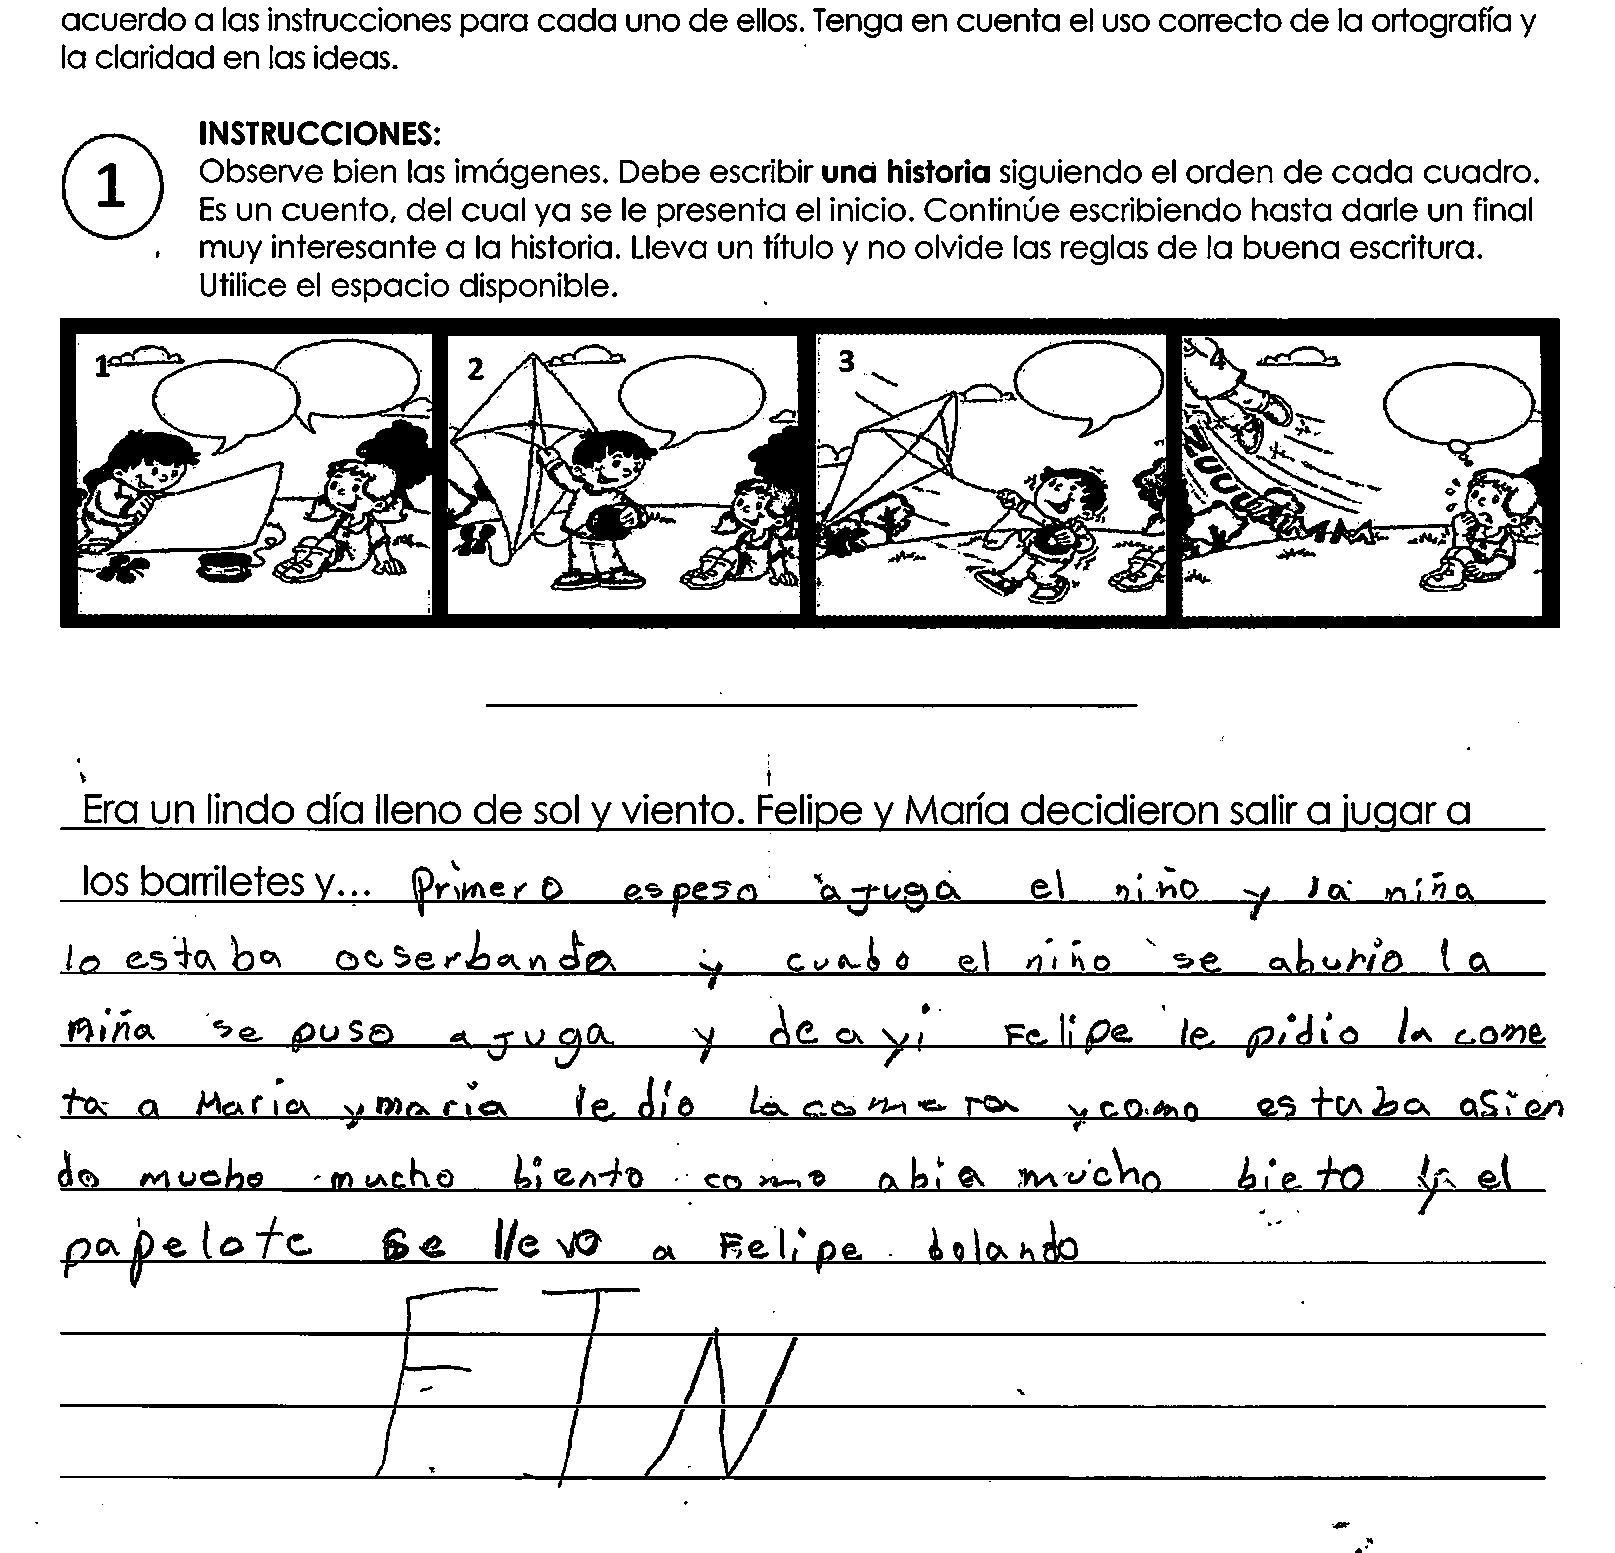 acuerdo a las instrucciones para cada uno de ellos. Tenga en cuenta el uso correcto de la ortografía y
la claridad en las ideas.
1
INSTRUCCIONES:
Observe bien las imágenes. Debe escribir una historia siguiendo el orden de cada cuadro.
Es un cuento, del cual ya se le presenta el inicio. Continúe escribiendo hasta darle un final
muy interesante a la historia. Lleva un título y no olvide las reglas de la buena escritura.
Utilice el espacio disponible.
1 2 3 4
ZUUUUMMM
Era un lindo día lleno de sol y viento. Felipe y María decidieron salir a jugar a
los barriletes y... Primero espeso a juga el niño y la niña
lo estaba ocserbando y cuando el niño se aburio la
niña se puso a juga y de ayi Felipe le pidio la come
ta a Maria y maria le dio la cometa y como estaba asien
do mucho mucho biento como abia mucho bieto y el
papelote se llevo a Felipe bolando
FIN